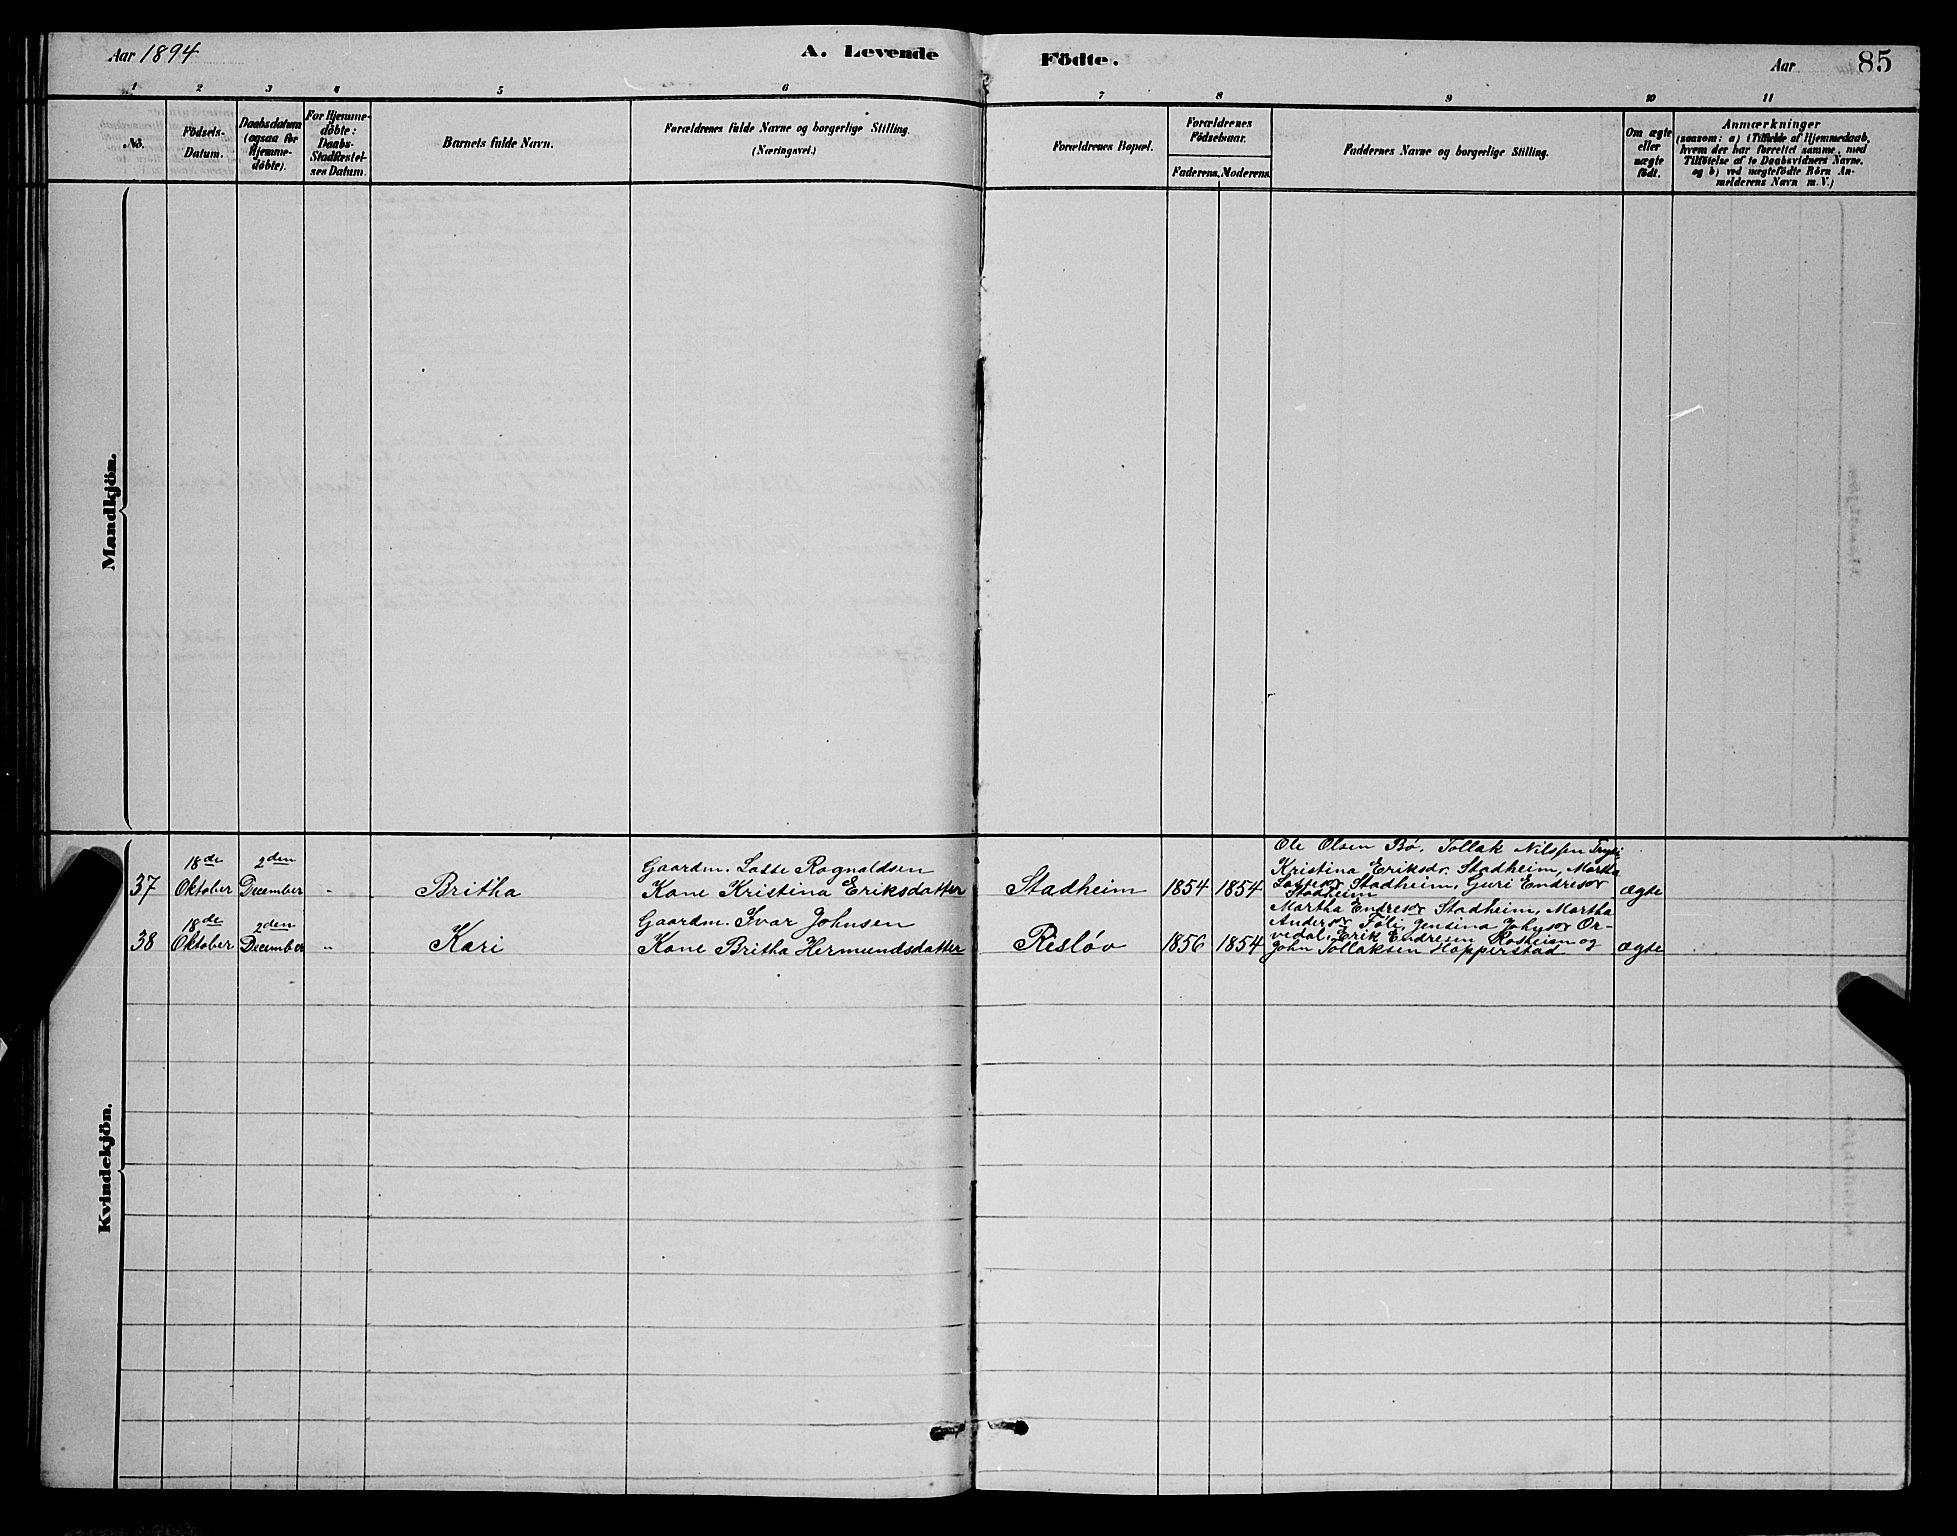 Aar 1894
A. Levende
Födte.
Aar
85
1 2 3 4 5 6 7 8 9 10 11
No.
Födsels-
Datum.
Daabsdatum
(ogsaa for
Hjemme-
döbte).
For Hjemme-
döbte:
Daabs-
Stadfæstel-
ses Datum.
Barnets fulde Navn.
Forældrenes fulde Navne og borgerlige Stilling.
(Næringsvei.)
Forældrenes Bopæl.
Forældrenes
Födselsaar.
Faderens. Moderens.
Faddernes Navne og borgerlige Stilling.
Om ægte
eller
uægte
födt.
Anmærkninger
(saasom: a) i Tilfælde af Hjemmedaab,
hvem der har forrettet samme, med
Tilföielse af to Daabsvidners Navne.
og b) ved uægtefödte Börn An-
melderens Navn m. V.)
Mandkjön.
Kvindekjön.
37
18de
Oktober
2den
December
"
Britha
Gaardm. Lasse Ragnaldsen
Kone Kristina Eriksdatter
Stadheim
1854
1854
Ole Olsen Bø, Tollak Nilssen
Kristina Eriksdr. Stadheim, Martha
Lassesdr Stadheim, Guri Endresdr
Stadheim
ægte
38
18de
Oktober
2den
December
"
Kari
Gaardm. Ivar Johnsen
Kone Britha Hermundsdatter
Risløv
1856
1854
Martha Endresdr Stadheim, Martha
Andersdr Føli, Jensina Johnsdr Or-
vedal, Erik Endresen Rosheim og
John Tollaksen Hopperstad
ægte